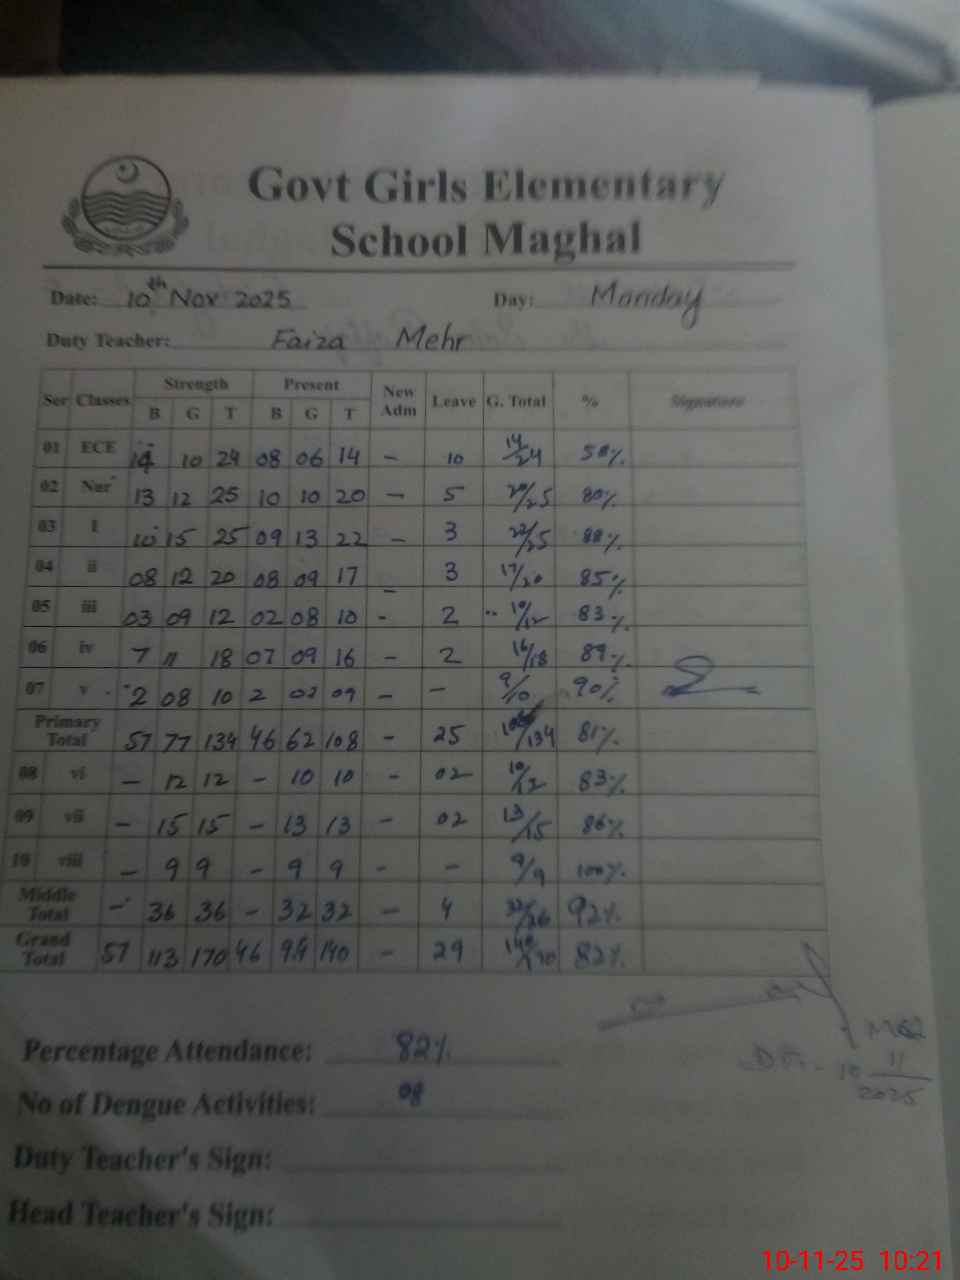 Govt Girls Elementary
School Maghal
Date: 10th Nov 2025 Day: Monday
Duty Teacher: Faiza Mehr
Ser Classes Strength Present New Adm Leave G. Total % Signature
B G T B G T
01 ECE 14 10 24 08 06 14 - 10 14/24 58%
02 Nur 13 12 25 10 10 20 - 5 20/25 80%
03 I 10 15 25 09 13 22 - 3 22/25 88%
04 ii 08 12 20 08 09 17 - 3 17/20 85%
05 iii 03 09 12 02 08 10 - 2 10/12 83%
06 iv 7 11 18 07 09 16 - 2 16/18 89%
07 v 2 08 10 2 07 09 - - 9/10 90%
Primary Total 57 77 134 46 62 108 - 25 108/134 81%
08 vi - 12 12 - 10 10 - 02 10/12 83%
09 vii - 15 15 - 13 13 - 02 13/15 86%
10 viii - 9 9 - 9 9 - - 9/9 100%
Middle Total - 36 36 - 32 32 - 4 32/36 92%
Grand Total 57 113 170 46 94 140 - 29 140/170 82%
Percentage Attendance: 82%
No of Dengue Activities: 08
Duty Teacher's Sign:
Head Teacher's Sign:
10 11
2025
10-11-25 10:21